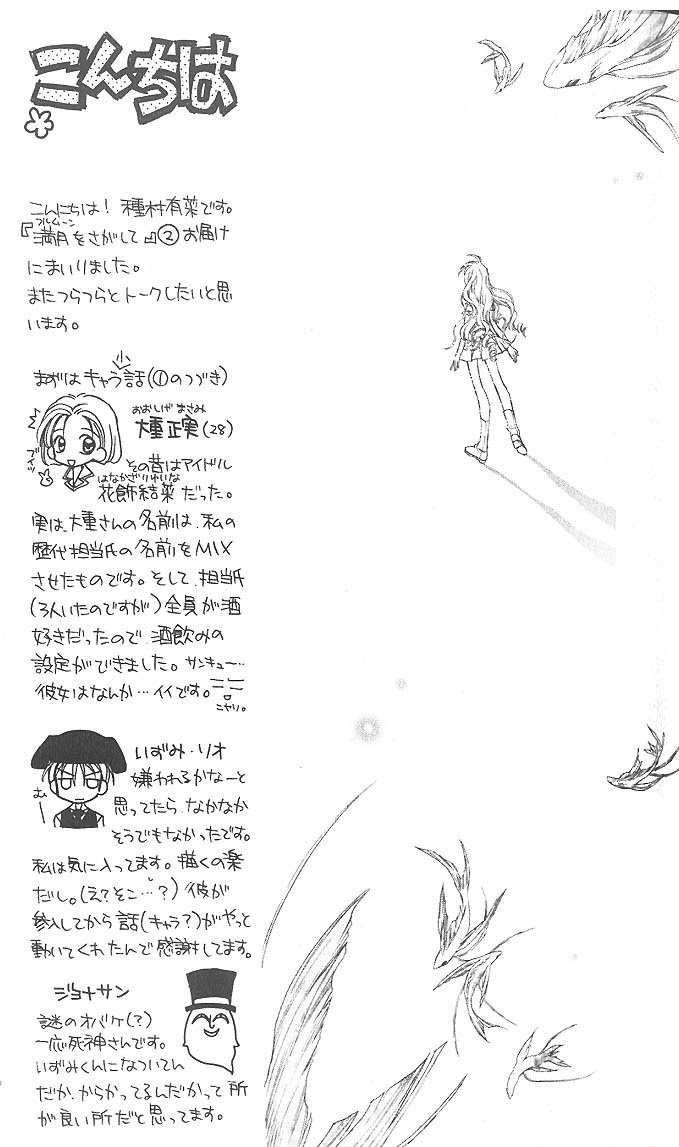 こんちは
こんにちは！ 種村有菜です。
フルムーン
『満月をさがして』② お届け
にまいりました。
またつらつらとトークしたいと思
います。
小
まずはキャラ話(①のつづき)
おおしげ まさみ
大重正実(28)
ブイッ
その昔はアイドル
はなかざりゆいな
花飾結菜だった。
実は、大重さんの名前は、私の
歴代担当氏の名前をMIX
させたものです。そして、担当氏
(3人いたのですが)全員が酒
好きだったので、酒飲みの
設定ができました。サンキュー…
彼女はなんか…イイです。
ニヤリ。
いずみ・リオ
むー
嫌われるかなーと
思ってたら、なかなか
そうでもなかったです。
私は気に入ってます。描くの楽
だし。(え？そこ…？)彼が
参入してから話(キャラ？)がやっと
動いてくれたんで感謝してます。
ジョナサン
謎のオバケ(？)
一応死神さんです。
いずみくんになついてん
だか、からかってるんだかって所
が良い所だと思ってます。